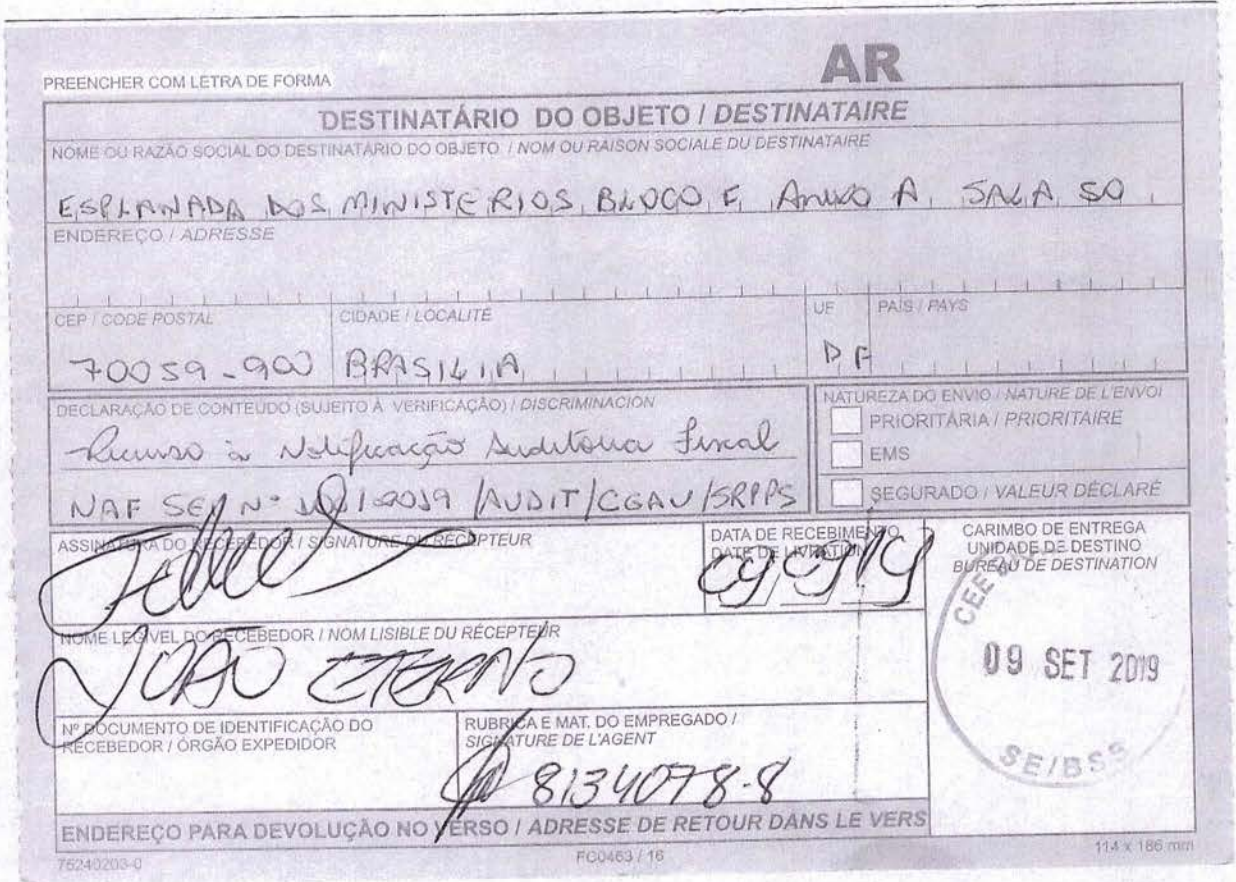 AR
PREENCHER COM LETRA DE FORMA
DESTINATÁRIO DO OBJETO / DESTINATAIRE
NOME OU RAZÃO SOCIAL DO DESTINATÁRIO DO OBJETO / NOM OU RAISON SOCIALE DU DESTINATAIRE
ESPLANADA DOS MINISTERIOS, BLOCO E, Anexo A, SALA SO
ENDEREÇO / ADRESSE
CEP / CODE POSTAL CIDADE / LOCALITÉ UF PAÍS / PAYS
70059-900 BRASILIA DF
DECLARAÇÃO DE CONTEÚDO (SUJEITO À VERIFICAÇÃO) / DISCRIMINACION
Recurso à Notificação Auditoria Fiscal
NAF SEI Nº /2019 /AUDIT/CGAU/SRPPS
NATUREZA DO ENVIO / NATURE DE L'ENVOI
PRIORITÁRIA / PRIORITAIRE
EMS
SEGURADO / VALEUR DÉCLARÉ
ASSINATURA DO RECEBEDOR / SIGNATURE DU RÉCEPTEUR
DATA DE RECEBIMENTO
DATE DE LIVRATION
09 09 19
CARIMBO DE ENTREGA
UNIDADE DE DESTINO
BUREAU DE DESTINATION
CEE
09 SET 2019
SE/BSS
NOME LEGÍVEL DO RECEBEDOR / NOM LISIBLE DU RÉCEPTEUR
JOÃO ETERNO
Nº DOCUMENTO DE IDENTIFICAÇÃO DO
RECEBEDOR / ÓRGÃO EXPEDIDOR
RUBRICA E MAT. DO EMPREGADO /
SIGNATURE DE L'AGENT
8134078-8
ENDEREÇO PARA DEVOLUÇÃO NO VERSO / ADRESSE DE RETOUR DANS LE VERS
75240203-0 FC0463 / 16 114 x 186 mm